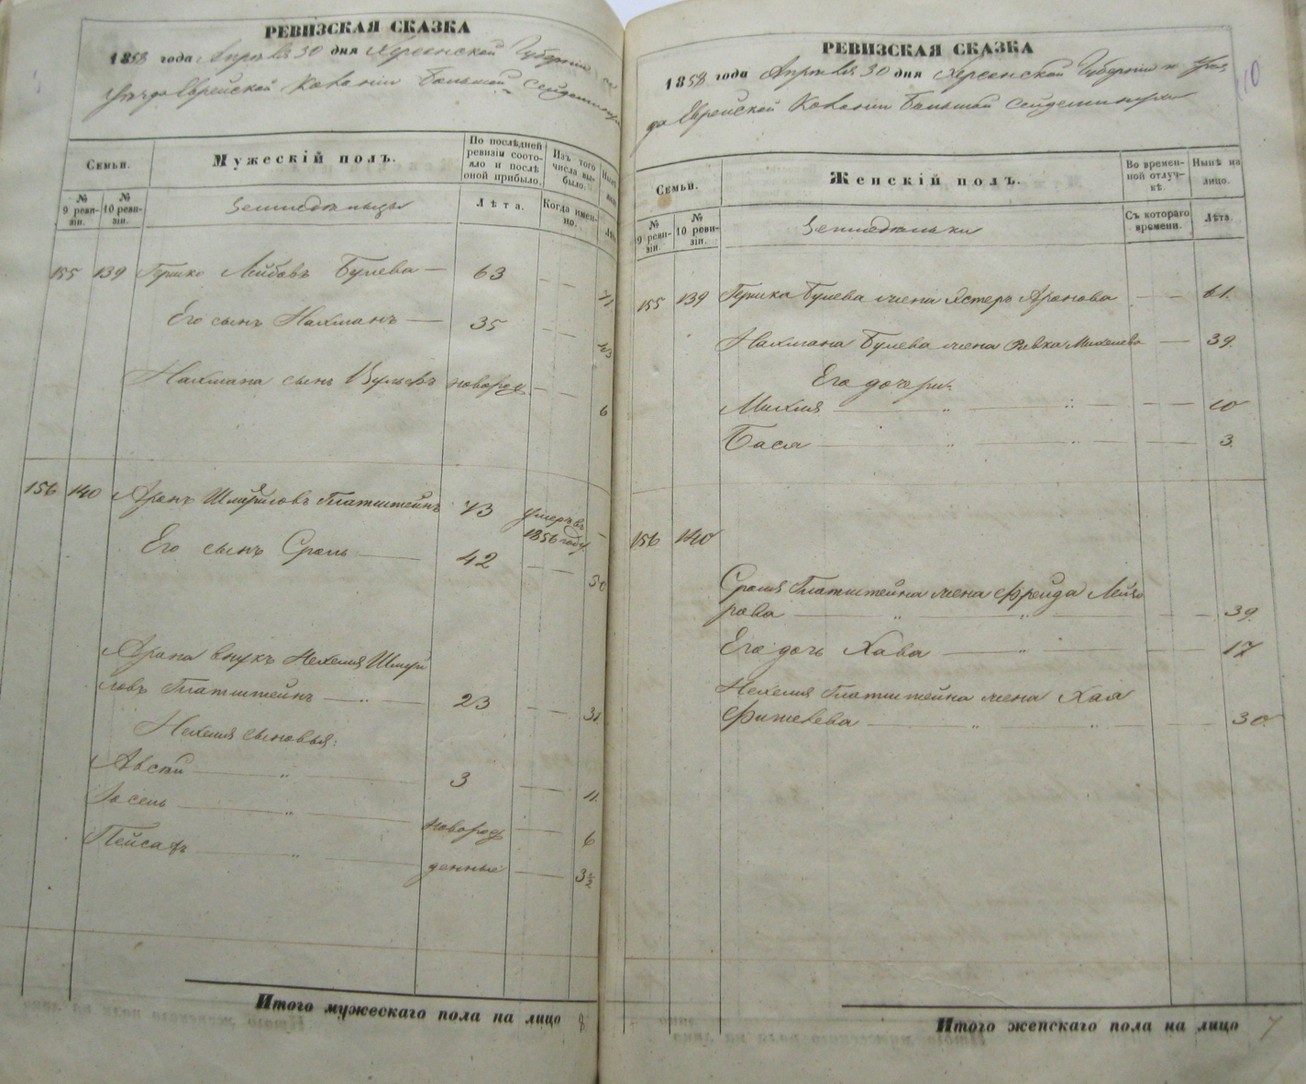 РЕВИЗСКАЯ СКАЗКА
1858 года Апреля 30 дня Херсонской Губернии и
Уезда Еврейской Колонии Большой Сейдеминухи
Семьи.
Мужескій полъ.
По послѣдней ревизіи состояло и послѣ оной прибыло.
Изъ того числа выбыло.
№ 9 ревизіи.
№ 10 ревизіи.
Земледельцы
Лѣта.
Когда именно.
155 139 Гершко Лейбовъ Булева — 63
Его сынъ Нахманъ — 35
43
Нахмана сынъ новорож
6
156 140 Аронъ Шмуйловъ Глатштейнъ 43 умеръ въ 1856 году —
Его сынъ Сроль — 42
50
Арона внукъ Нехемия Шмуй
ловъ Глатштейнъ — „ — 23
31
Нехемия сыновья:
3 11
Іосель — „ — новорож 6
Пейсахъ — „ — денные 3½
Итого мужескаго пола на лицо 8
РЕВИЗСКАЯ СКАЗКА
1858 года Апреля 30 дня Херсонской Губернии и Уез
да Еврейской Колонии Большой Сейдеминухи
110
Семьи.
Женскій полъ.
Во временной отлучкѣ.
Нынѣ на лицо.
№ 9 ревизіи.
№ 10 ревизіи.
Земледельки
Съ котораго времени.
Лѣта.
155 139 Гершка Булева жена Эстеръ Аронова — — 61.
Нахмана Булева жена Ривка Михелева — 39.
Его дочери:
— „ — „ — — 10
Бася — „ — „ — — 3.
156 140
Сроля Глатштейна жена Фрейда Лейзо
рова — „ — „ — — 39.
Его дочь Хава — „ — — 17
Нехемия Глатштейна жена Хая
— „ — „ — — 30.
Итого женскаго пола на лицо 7